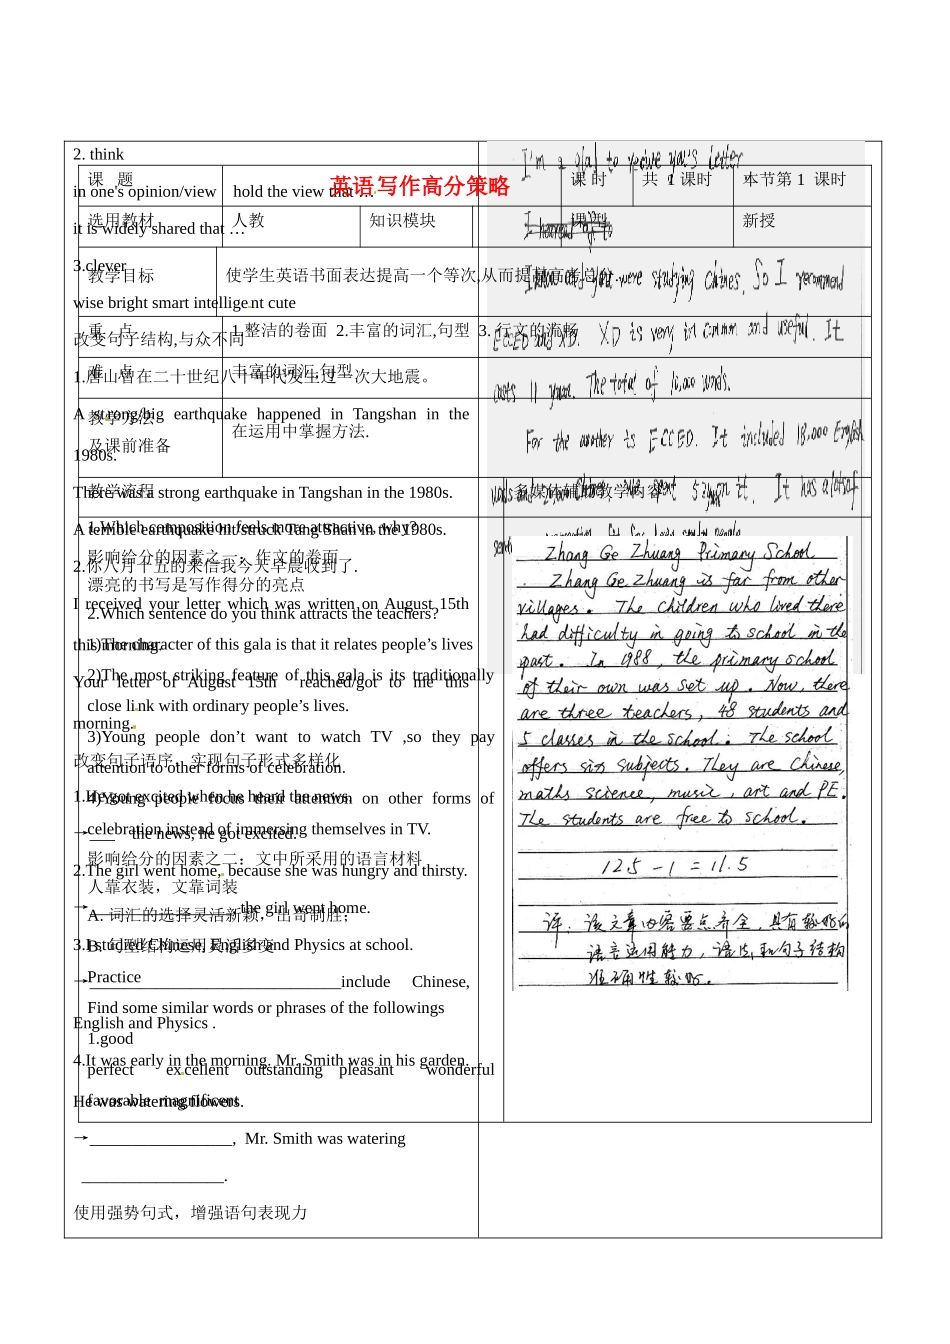 课 题
英语写作高分策略
课 时
共 1 课时
本节第 1 课时
选用教材
人教
知识模块
课型
新授
教学目标
使学生英语书面表达提高一个等次,从而提高高考总分
重 点
1.整洁的卷面 2.丰富的词汇,句型 3. 行文的流畅
难 点
丰富的词汇,句型
教学方法
及课前准备
在运用中掌握方法.
教学流程
多媒体辅助教学内容
1.Which composition feels more attractive, why?
影响给分的因素之一：作文的卷面
漂亮的书写是写作得分的亮点
2.Which sentence do you think attracts the teachers?
1)The character of this gala is that it relates people’s lives
2)The most striking feature of this gala is its traditionally
close link with ordinary people’s lives.
3)Young people don’t want to watch TV ,so they pay
attention to other forms of celebration.
4)Young people focus their attention on other forms of
celebration instead of immersing themselves in TV.
影响给分的因素之二：文中所采用的语言材料
人靠衣装，文靠词装
A. 词汇的选择灵活新颖，出奇制胜；
B. 句型结构运用灵活多变
Practice
Find some similar words or phrases of the followings
1.good
perfect excellent outstanding pleasant wonderful
favorable magnificent
2. think
in one's opinion/view hold the view that …
it is widely shared that …
3.clever
wise bright smart intelligent cute
改变句子结构,与众不同
1.唐山曾在二十世纪八十年代发生过一次大地震。
A strong/big earthquake happened in Tangshan in the
1980s.
There was a strong earthquake in Tangshan in the 1980s.
A terrible earthquake hit/struck Tang Shan in the 1980s.
2.你八月十五的来信我今天早晨收到了.
I received your letter which was written on August 15th
this morning.
Your letter of August 15th reached/got to me this
morning.
改变句子语序，实现句子形式多样化
1.He got excited when he heard the news.
→___ the news, he got excited.
2.The girl went home, because she was hungry and thirsty.
→__________________the girl went home.
3.I studied Chinese, English and Physics at school.
→______________________________include Chinese,
English and Physics .
4.It was early in the morning. Mr. Smith was in his garden.
He was watering flowers.
→_________________, Mr. Smith was watering
_________________.
使用强势句式，增强语句表现力
I'm a glad to recive you's letter
were studying Chines. So I recommend
ECCED and XD. XD is very in common and useful. It
costs 11 yuan. The total of 10,000 words.
For the another is ECCED. It included 18,000 English
Zhang Ge Zhuang Primary School
Zhang Ge Zhuang is far from other
villages. The children who lived there
had difficulty in going to school in the
past. In 1988, the primary school
of their own was set up. Now, there
are three teachers, 48 students and
5 classes in the school. The school
offers six subjects. They are Chinese,
maths science, music, art and PE.
The students are free to school.
12.5 - 1 = 11.5
评: 该文章内容要点齐全, 具有较好的
语言运用能力, 语法和句子结构
准确性较好.